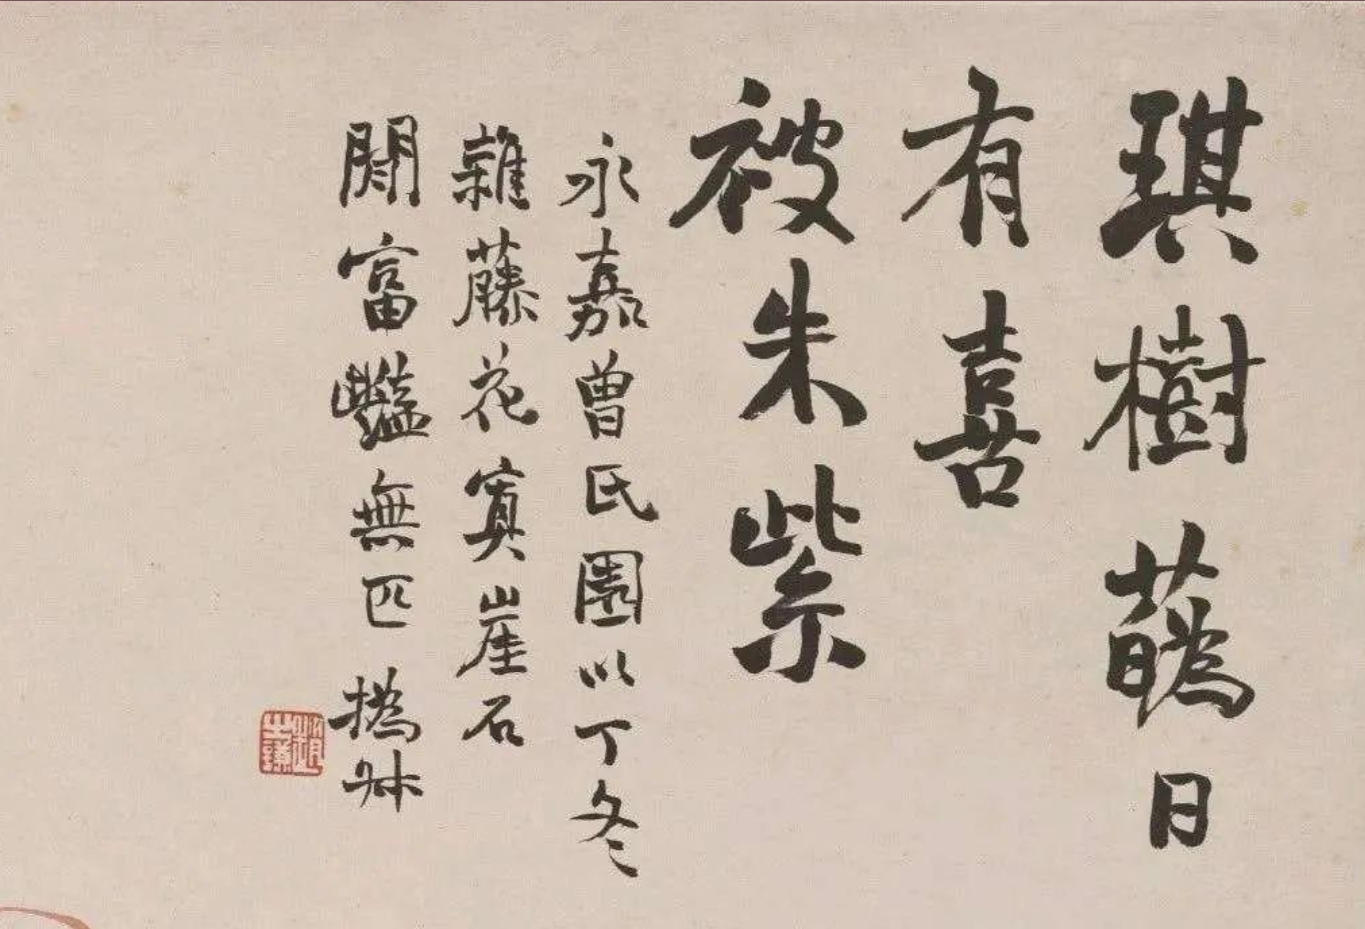 琪樹蘤日
有喜
被朱紫
永嘉曾氏園以丁冬
雜藤花寘崖石
閒富豔無匹 撝叔
趙之謙